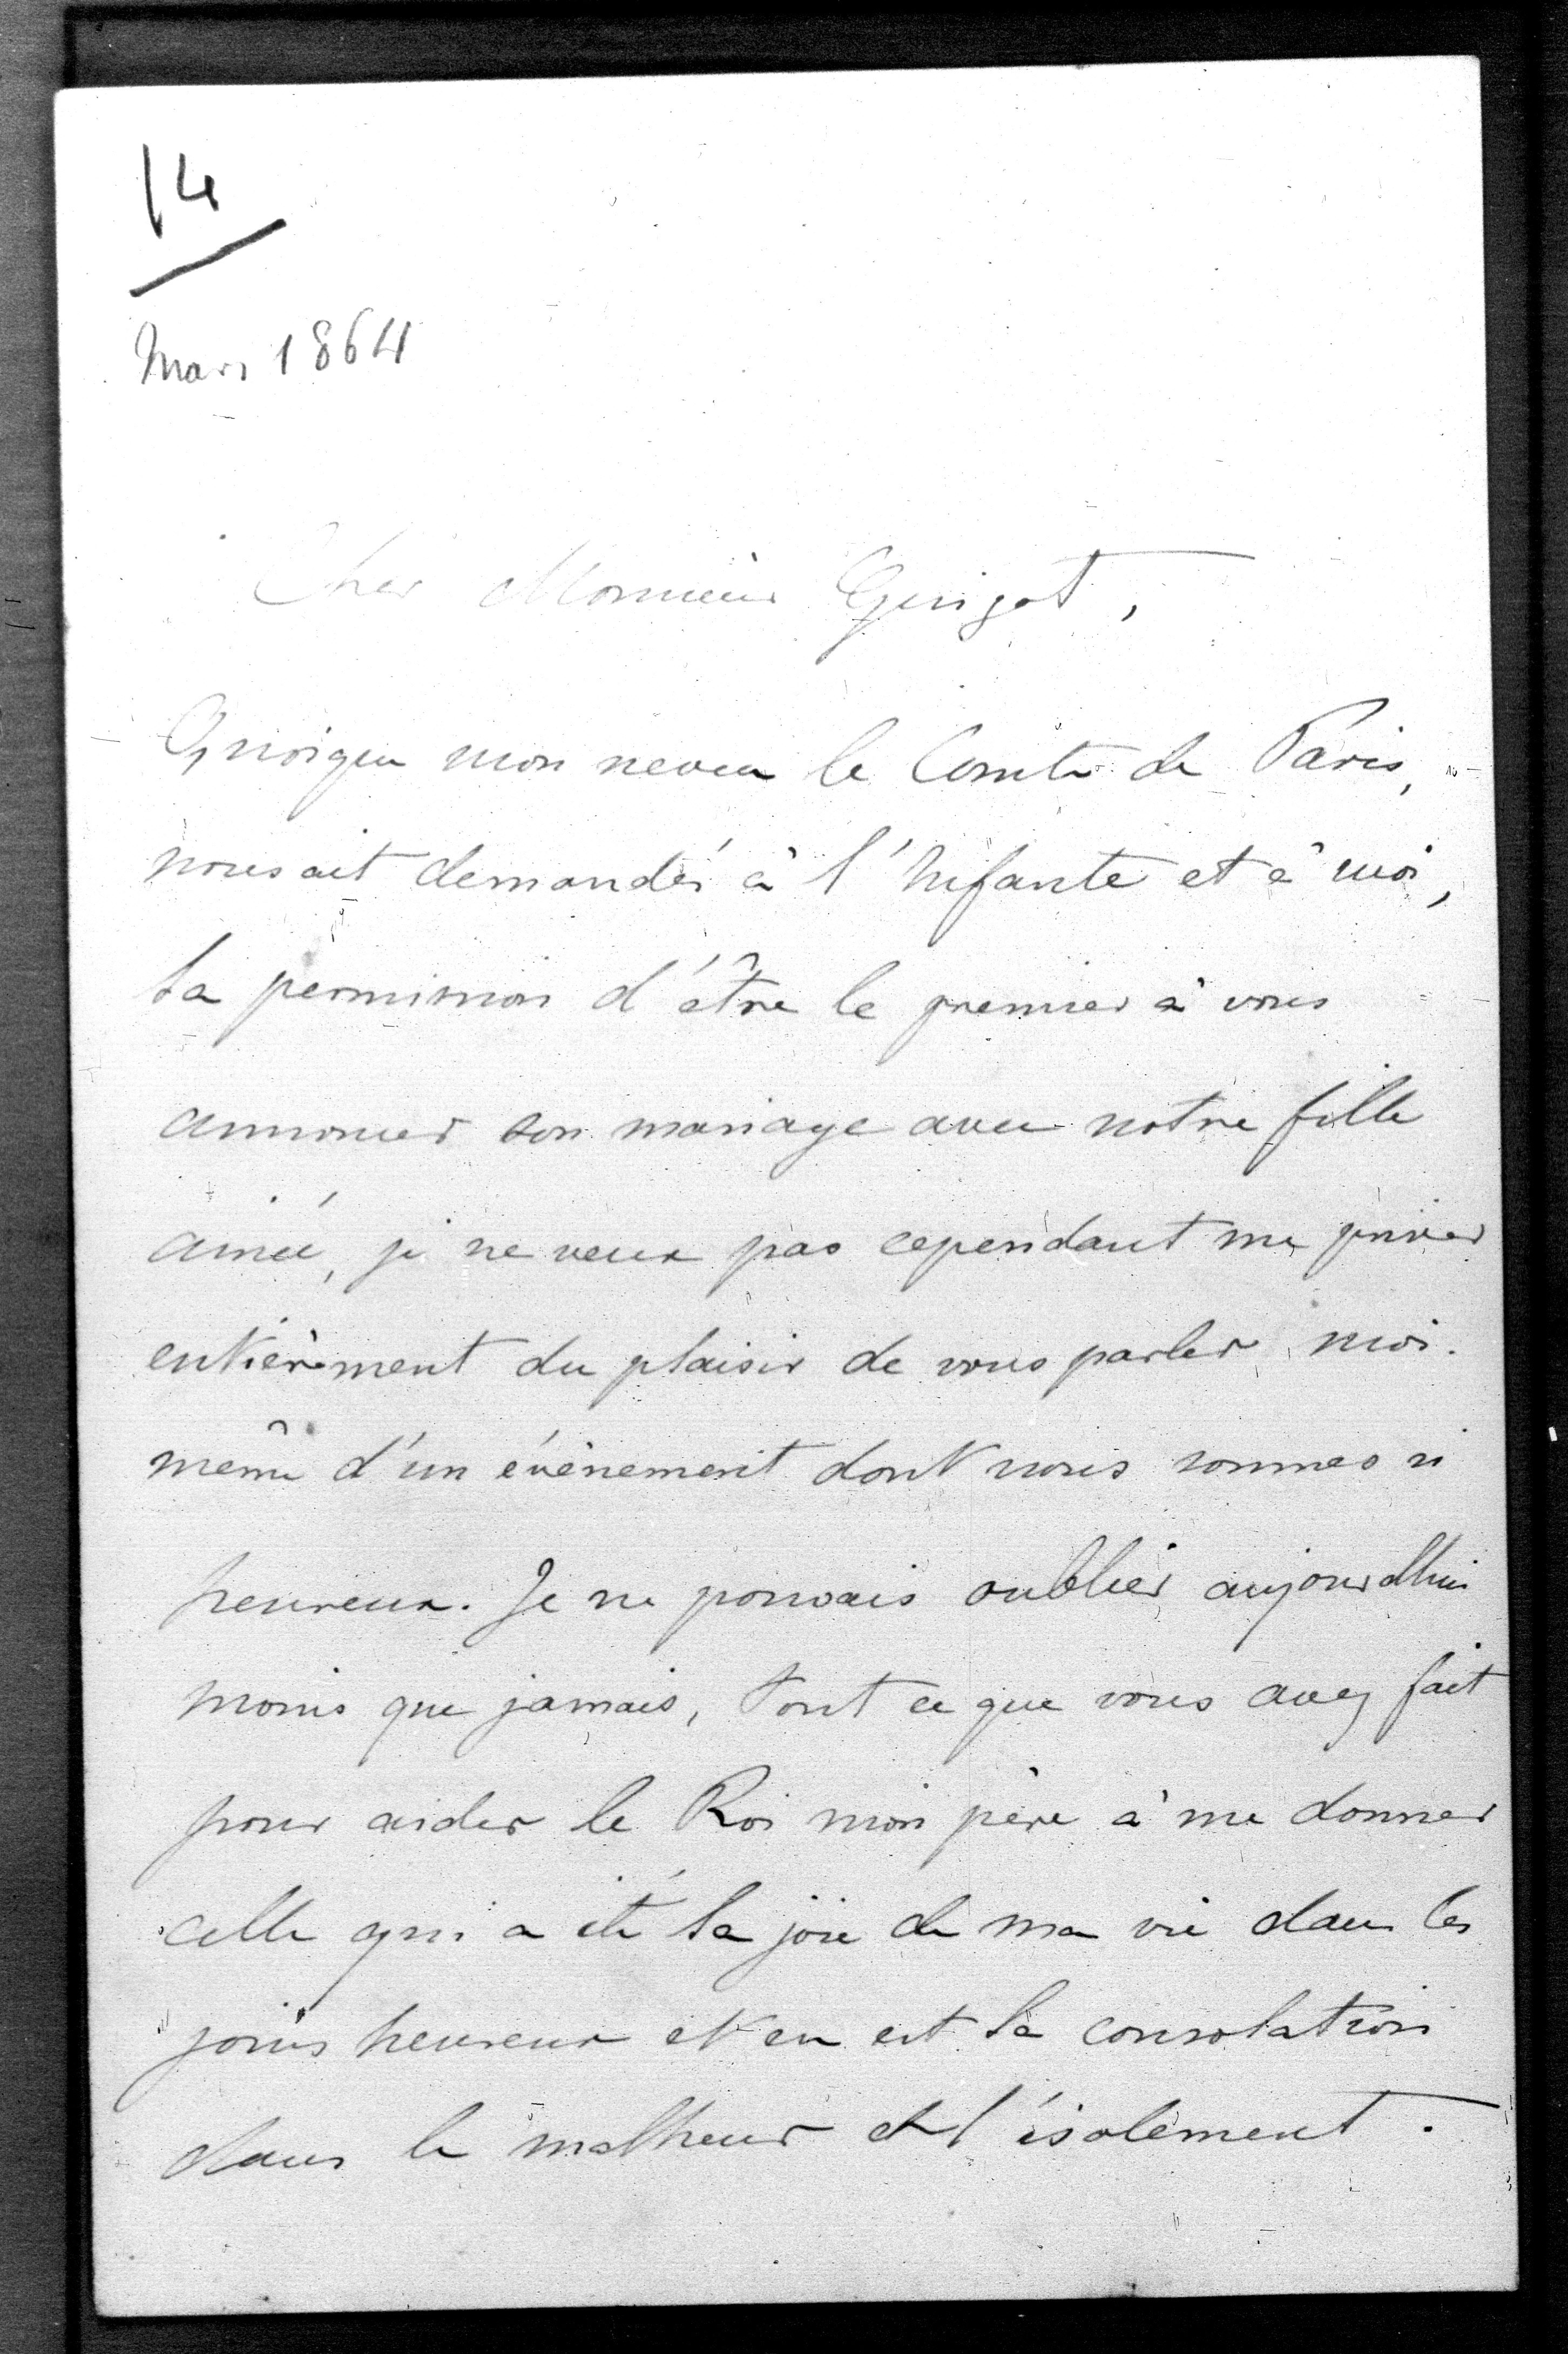 14
Mars 1864
Cher Monsieur Guizot,
Quoique mon neveu le Comte de Paris,
nous ait demandé à l'Infante et à moi,
la permission d'être le premier à vous
annoncer son mariage avec notre fille
ainée, je ne veux pas cependant me priver
entièrement du plaisir de vous parler moi-
même d'un évènement dont nous sommes si
heureux. Je ne pouvais oublier aujourdhui
moins que jamais, tout ce que vous avez fait
pour aider le Roi mon père à me donner
celle qui a été la joie de ma vie dans les
jours heureux et en est la consolation
dans le malheur et l'isolement.